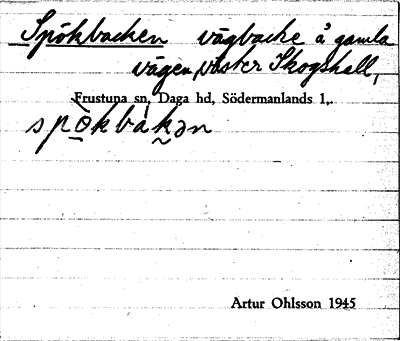 Spökbacken vägbacke å gamla
vägen, väster Skogshall,
Frustuna sn, Daga hd, Södermanlands l.
spö̀kbákən
Artur Ohlsson 1945